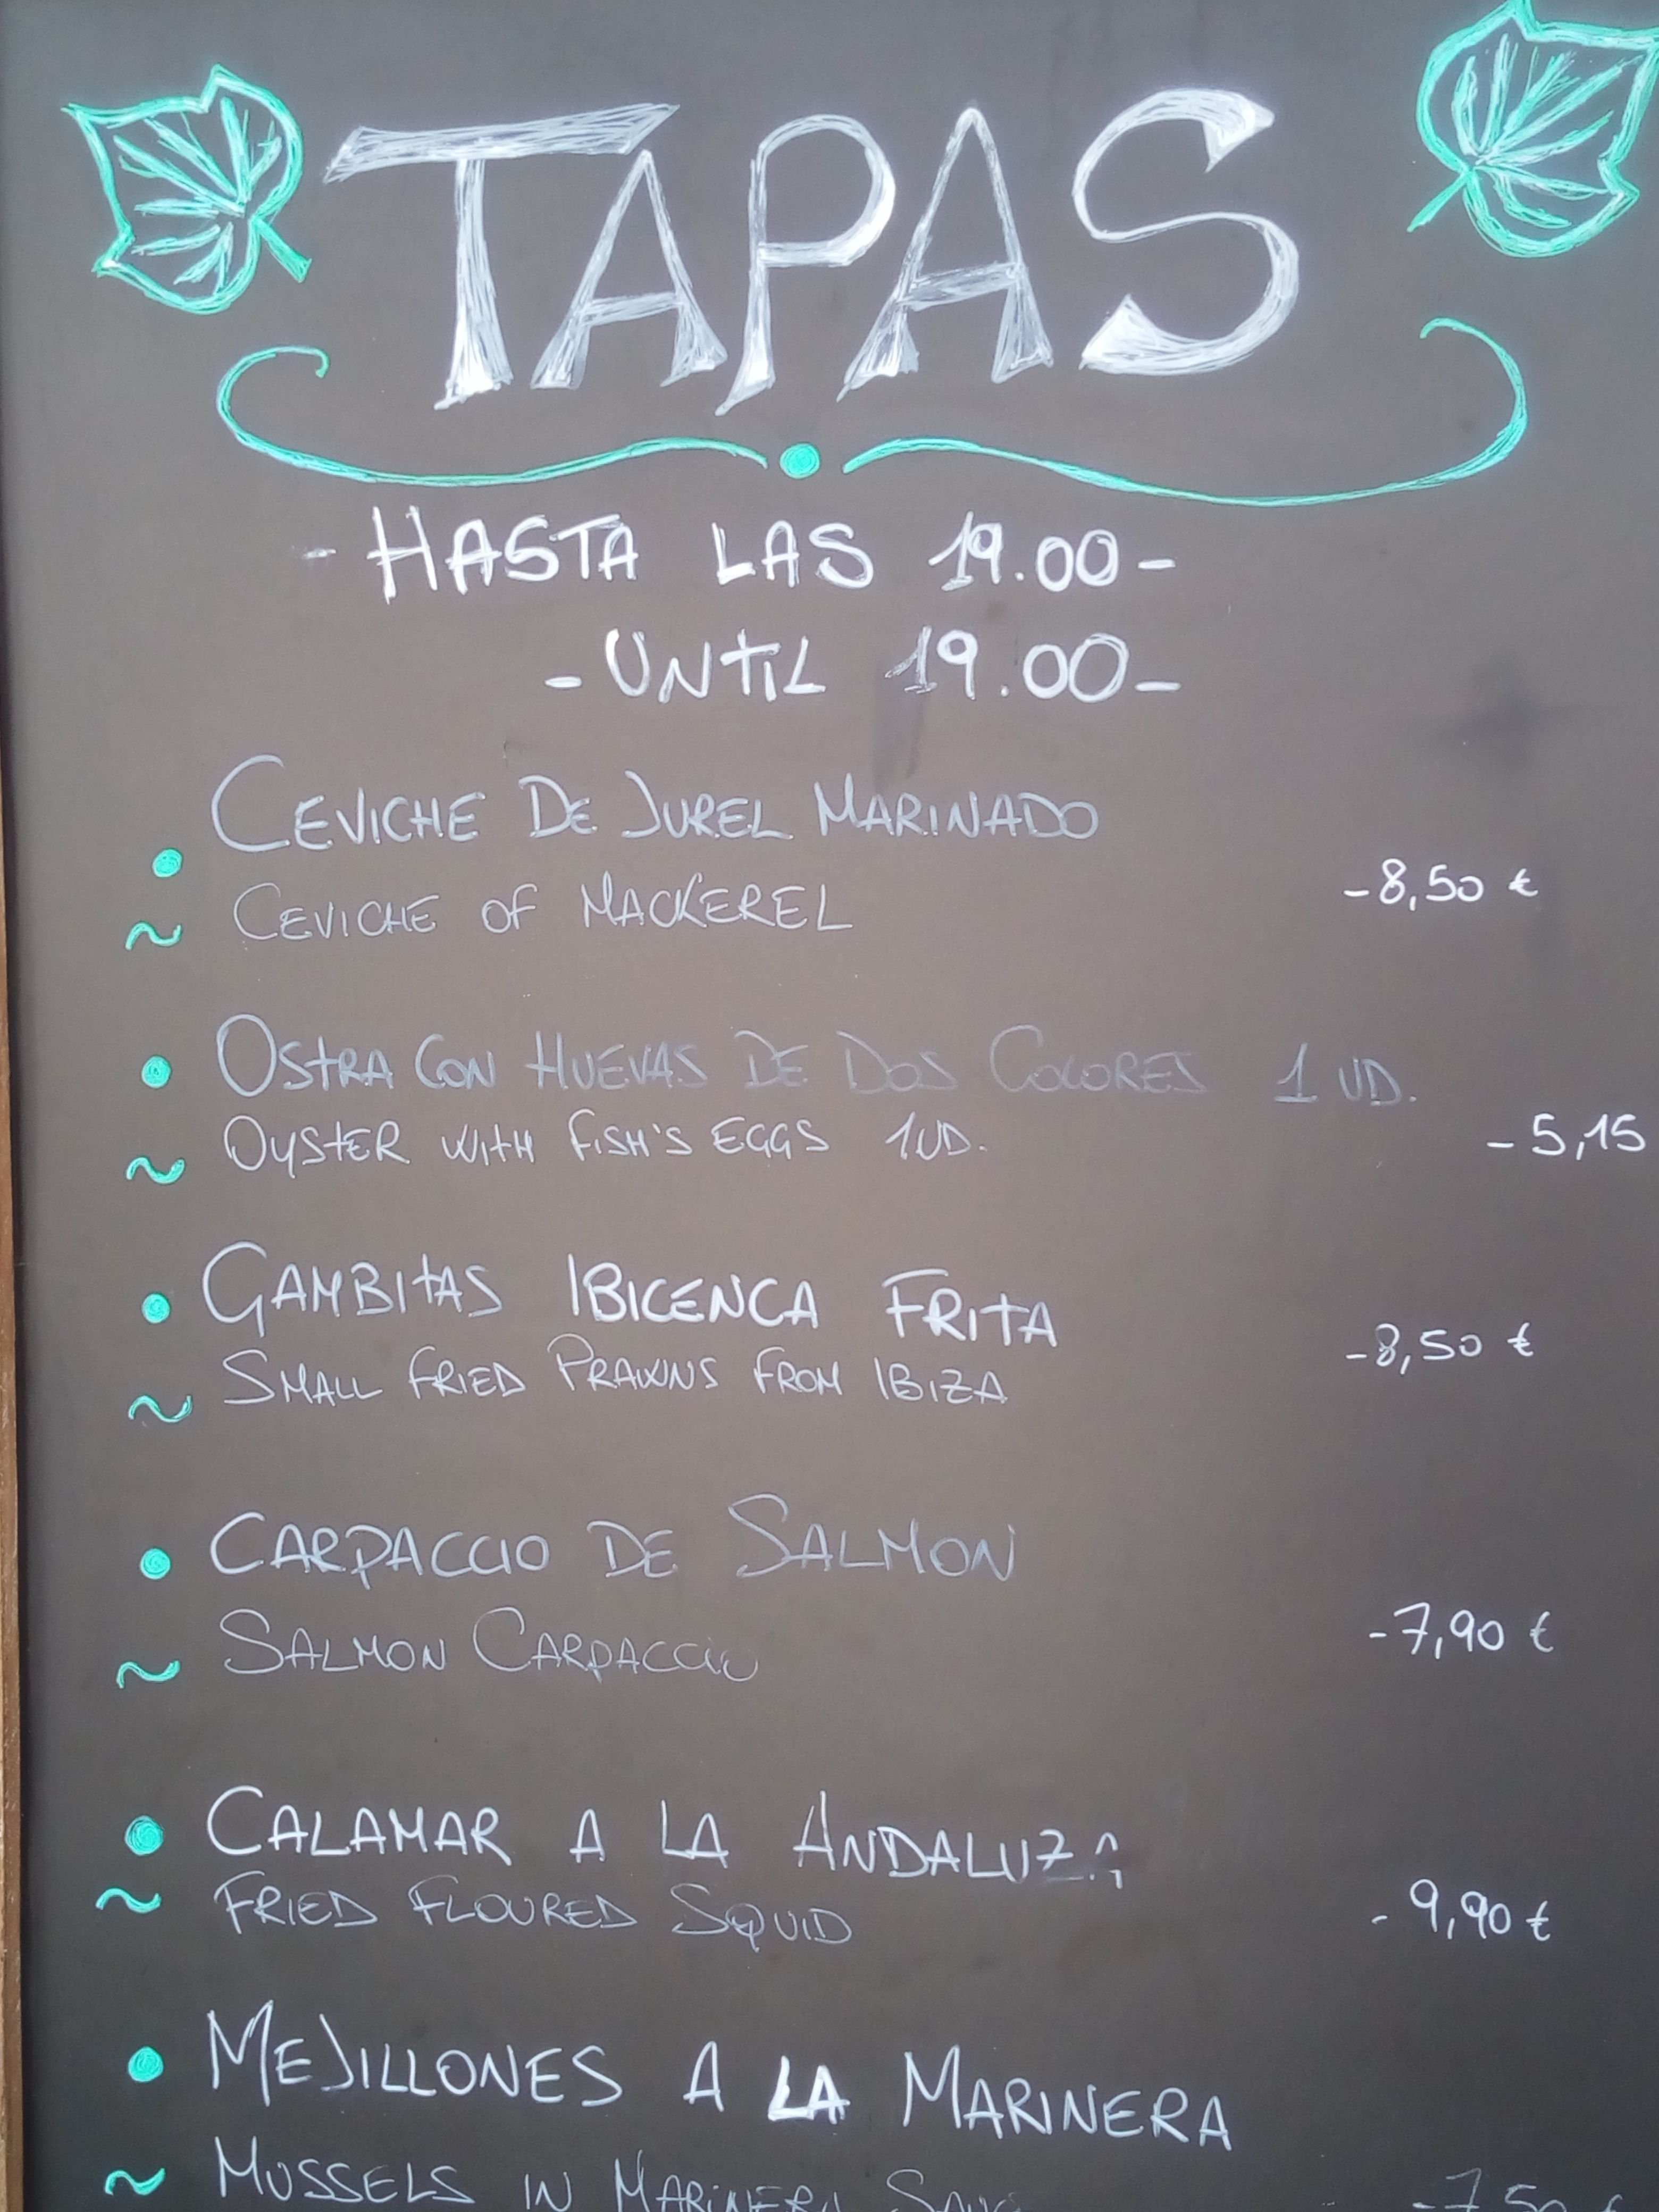 TAPAS
- HASTA LAS 19.00 -
- UNTIL 19.00 -
CEVICHE DE JUREL MARINADO
CEVICHE OF MACKEREL
- 8,50 €
OSTRA CON HUEVAS DE DOS COLORES 1 UD.
OYSTER WITH FISH'S EGGS 1UD.
- 5,15
GAMBITAS IBICENCA FRITA
SMALL FRIED PRAWNS FROM IBIZA
- 8,50 €
CARPACCIO DE SALMON
SALMON CARPACCIO
- 7,90 €
CALAMAR A LA ANDALUZA
FRIED FLOURED SQUID
- 9,90 €
MEJILLONES A LA MARINERA
MUSSELS IN MARINERA
- 7,50 €